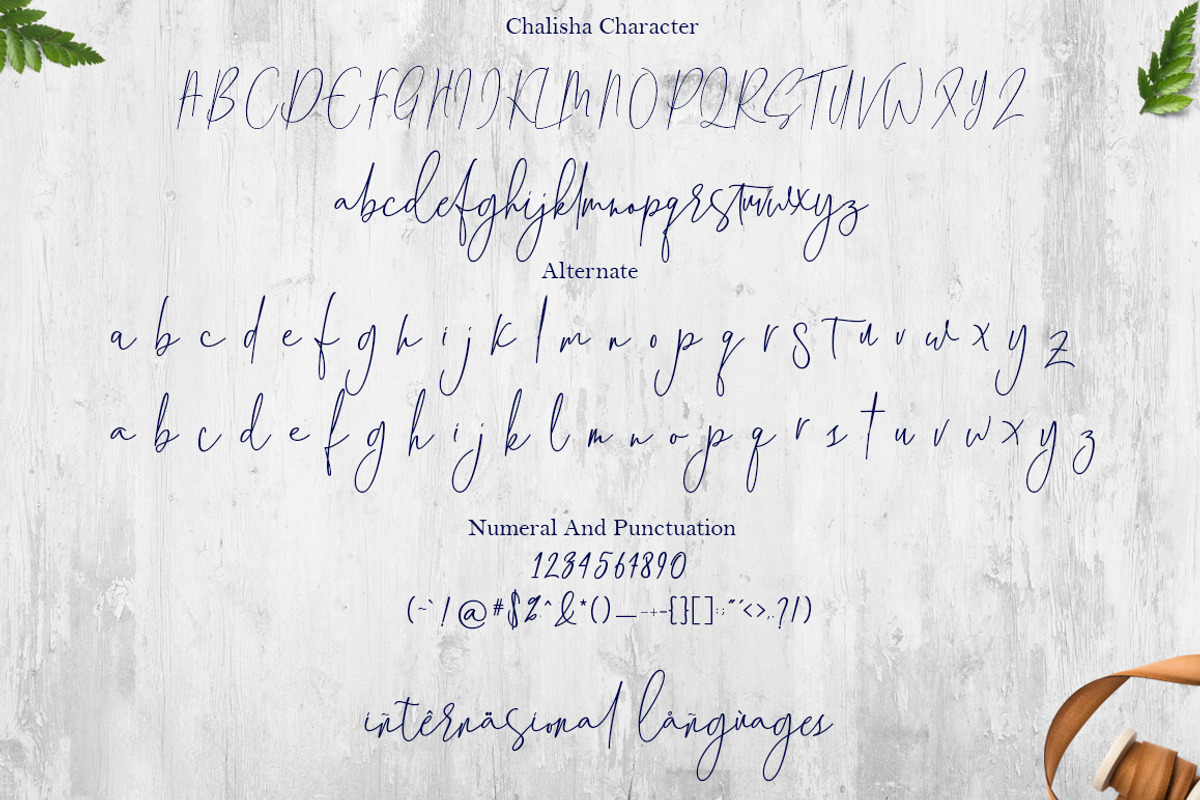 Chalisha Character
ABCDEFGHIJKLMNOPQRSTUVWXYZ
abcdefghijklmnopqrstuvwxyz
Alternate
a b c d e f g h i j k l m n o p q r s t u v w x y z
a b c d e f g h i j k l m n o p q r s t u v w x y z
Numeral And Punctuation
1234567890
(~`/@#$%^&*()_-+-{}[]:;"'<>,.?/)
iñtêrnäsional làñgùages